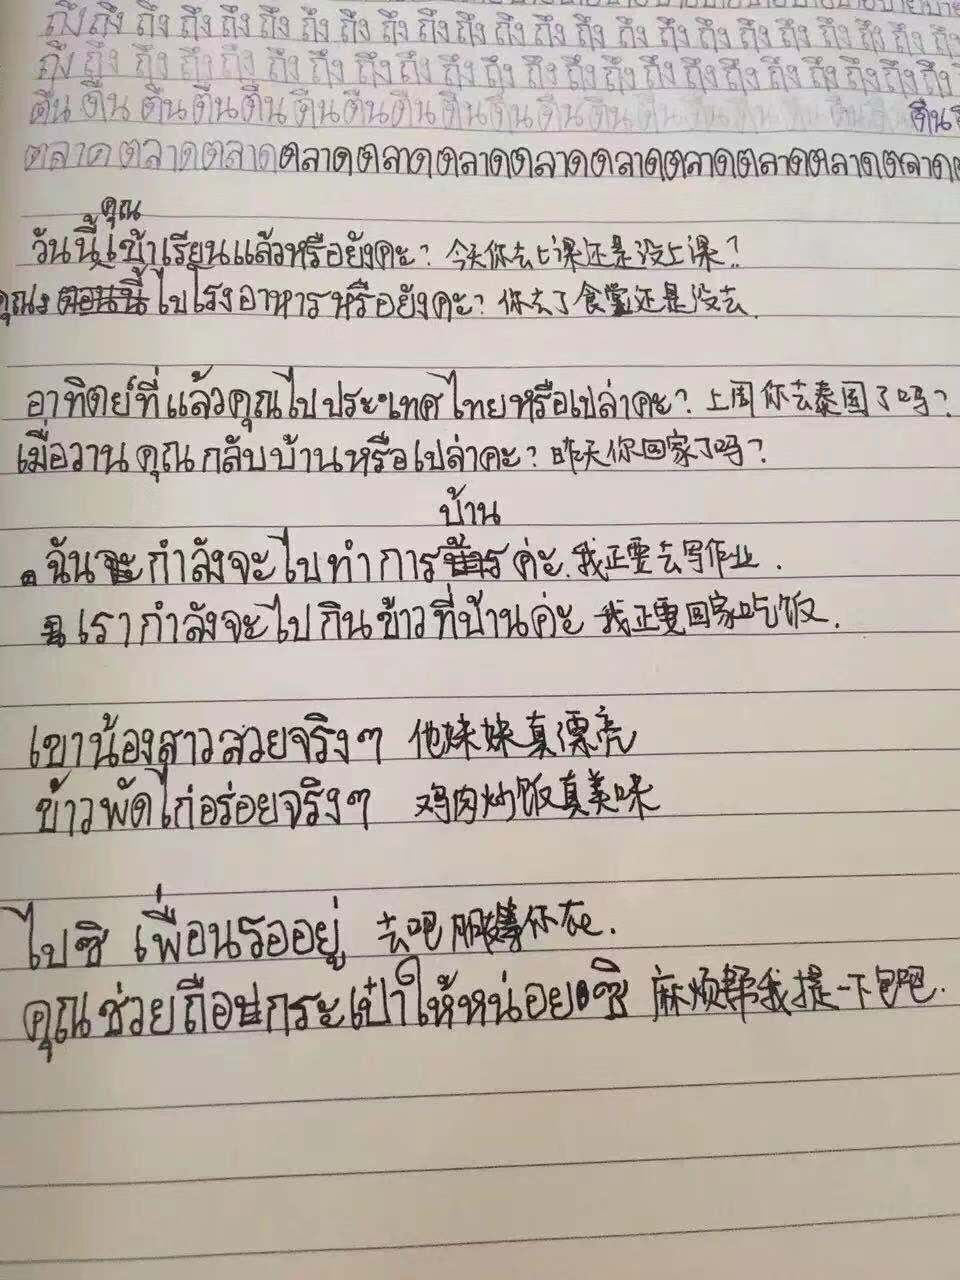 ถึง ถึง ถึง ถึง ถึง ถึง ถึง ถึง ถึง ถึง ถึง ถึง ถึง ถึง ถึง ถึง ถึง ถึง ถึง ถึง ถึง
ถึง ถึง ถึง ถึง ถึง ถึง ถึง ถึง ถึง ถึง ถึง ถึง ถึง ถึง ถึง ถึง ถึง ถึง ถึง ถึง ถึง ถึง
ตื่น ตื่น ตื่น ตื่น ตื่น ตื่น ตื่น ตื่น ตื่น ตื่น ตื่น ตื่น
ตลาด ตลาด ตลาด ตลาด ตลาด ตลาด ตลาด ตลาด ตลาด ตลาด ตลาด ตลาด
คุณ
วันนี้ เข้าเรียนแล้วหรือยังคะ? 今天你去上课还是没上课?
คุณ ไปโรงอาหารหรือยังคะ? 你去了食堂还是没去.
อาทิตย์ที่แล้วคุณไปประเทศไทยหรือเปล่าคะ? 上周你去泰国了吗?
เมื่อวานคุณกลับบ้านหรือเปล่าคะ? 昨天你回家了吗?
บ้าน
ฉันกำลังจะไปทำการ ค่ะ. 我正要去写作业.
เรากำลังจะไปกินข้าวที่บ้านค่ะ 我正要回家吃饭.
เขาน้องสาวสวยจริงๆ 他妹妹真漂亮
ข้าวพัดไก่อร่อยจริงๆ 鸡肉炒饭真美味
ไปซิ เพื่อนรออยู่ 去吧 你在.
คุณช่วยถือกระเป๋าให้หน่อยซิ 麻烦帮我提一下包吧.